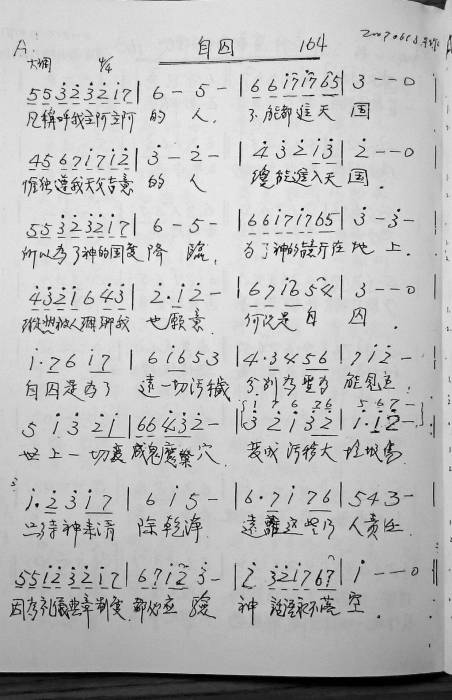 A. 自囚 164
大調 4/4
5 5 3 2 3 2 1 7 | 6 - 5 - | 6 6 1 7 1 7 6 5 | 3 - - 0
凡稱呼我主阿主阿 的 人, 不能都進天 国
4 5 6 7 1 7 1 2 | 3 - 2 - | 4 3 2 1 3 | 2 - - 0
惟独遵我天父旨意 的 人 纔能進入天 国.
5 5 3 2 3 2 1 7 | 6 - 5 - | 6 6 1 7 1 7 6 5 | 3 - 3 -
所以為了神的国度 降 臨, 為了神的 在 地 上.
4 3 2 1 6 4 3 | 2 · 1 2 - | 6 7 1 6 5 4 | 3 - - 0
我 也願意. 何况是自 囚.
1 · 7 6 1 7 | 6 1 6 5 3 | 4 · 3 4 5 6 | 7 1 2 -
自囚是為了 遠一切污穢 分别為聖為 能見主.
5 1 3 2 1 | 6 6 4 3 2 - | 3 2 1 3 2 | 1 · 1 2 -
1 7 6 7 6 5 6 7 -
世上一切變成鬼魔巢穴, 變成污穢大 垃圾
1 · 2 3 1 7 | 6 1 5 - | 6 · 7 1 7 6 | 5 4 3 -
等待神来清 除乾淨. 遠離这些乃 人責任.
5 5 1 2 3 2 1 7 | 6 7 1 2 3 - | 2 3 2 1 7 6 7 | 1 - - 0
因為 制度 都必应 驗 神 話語永不落 空.